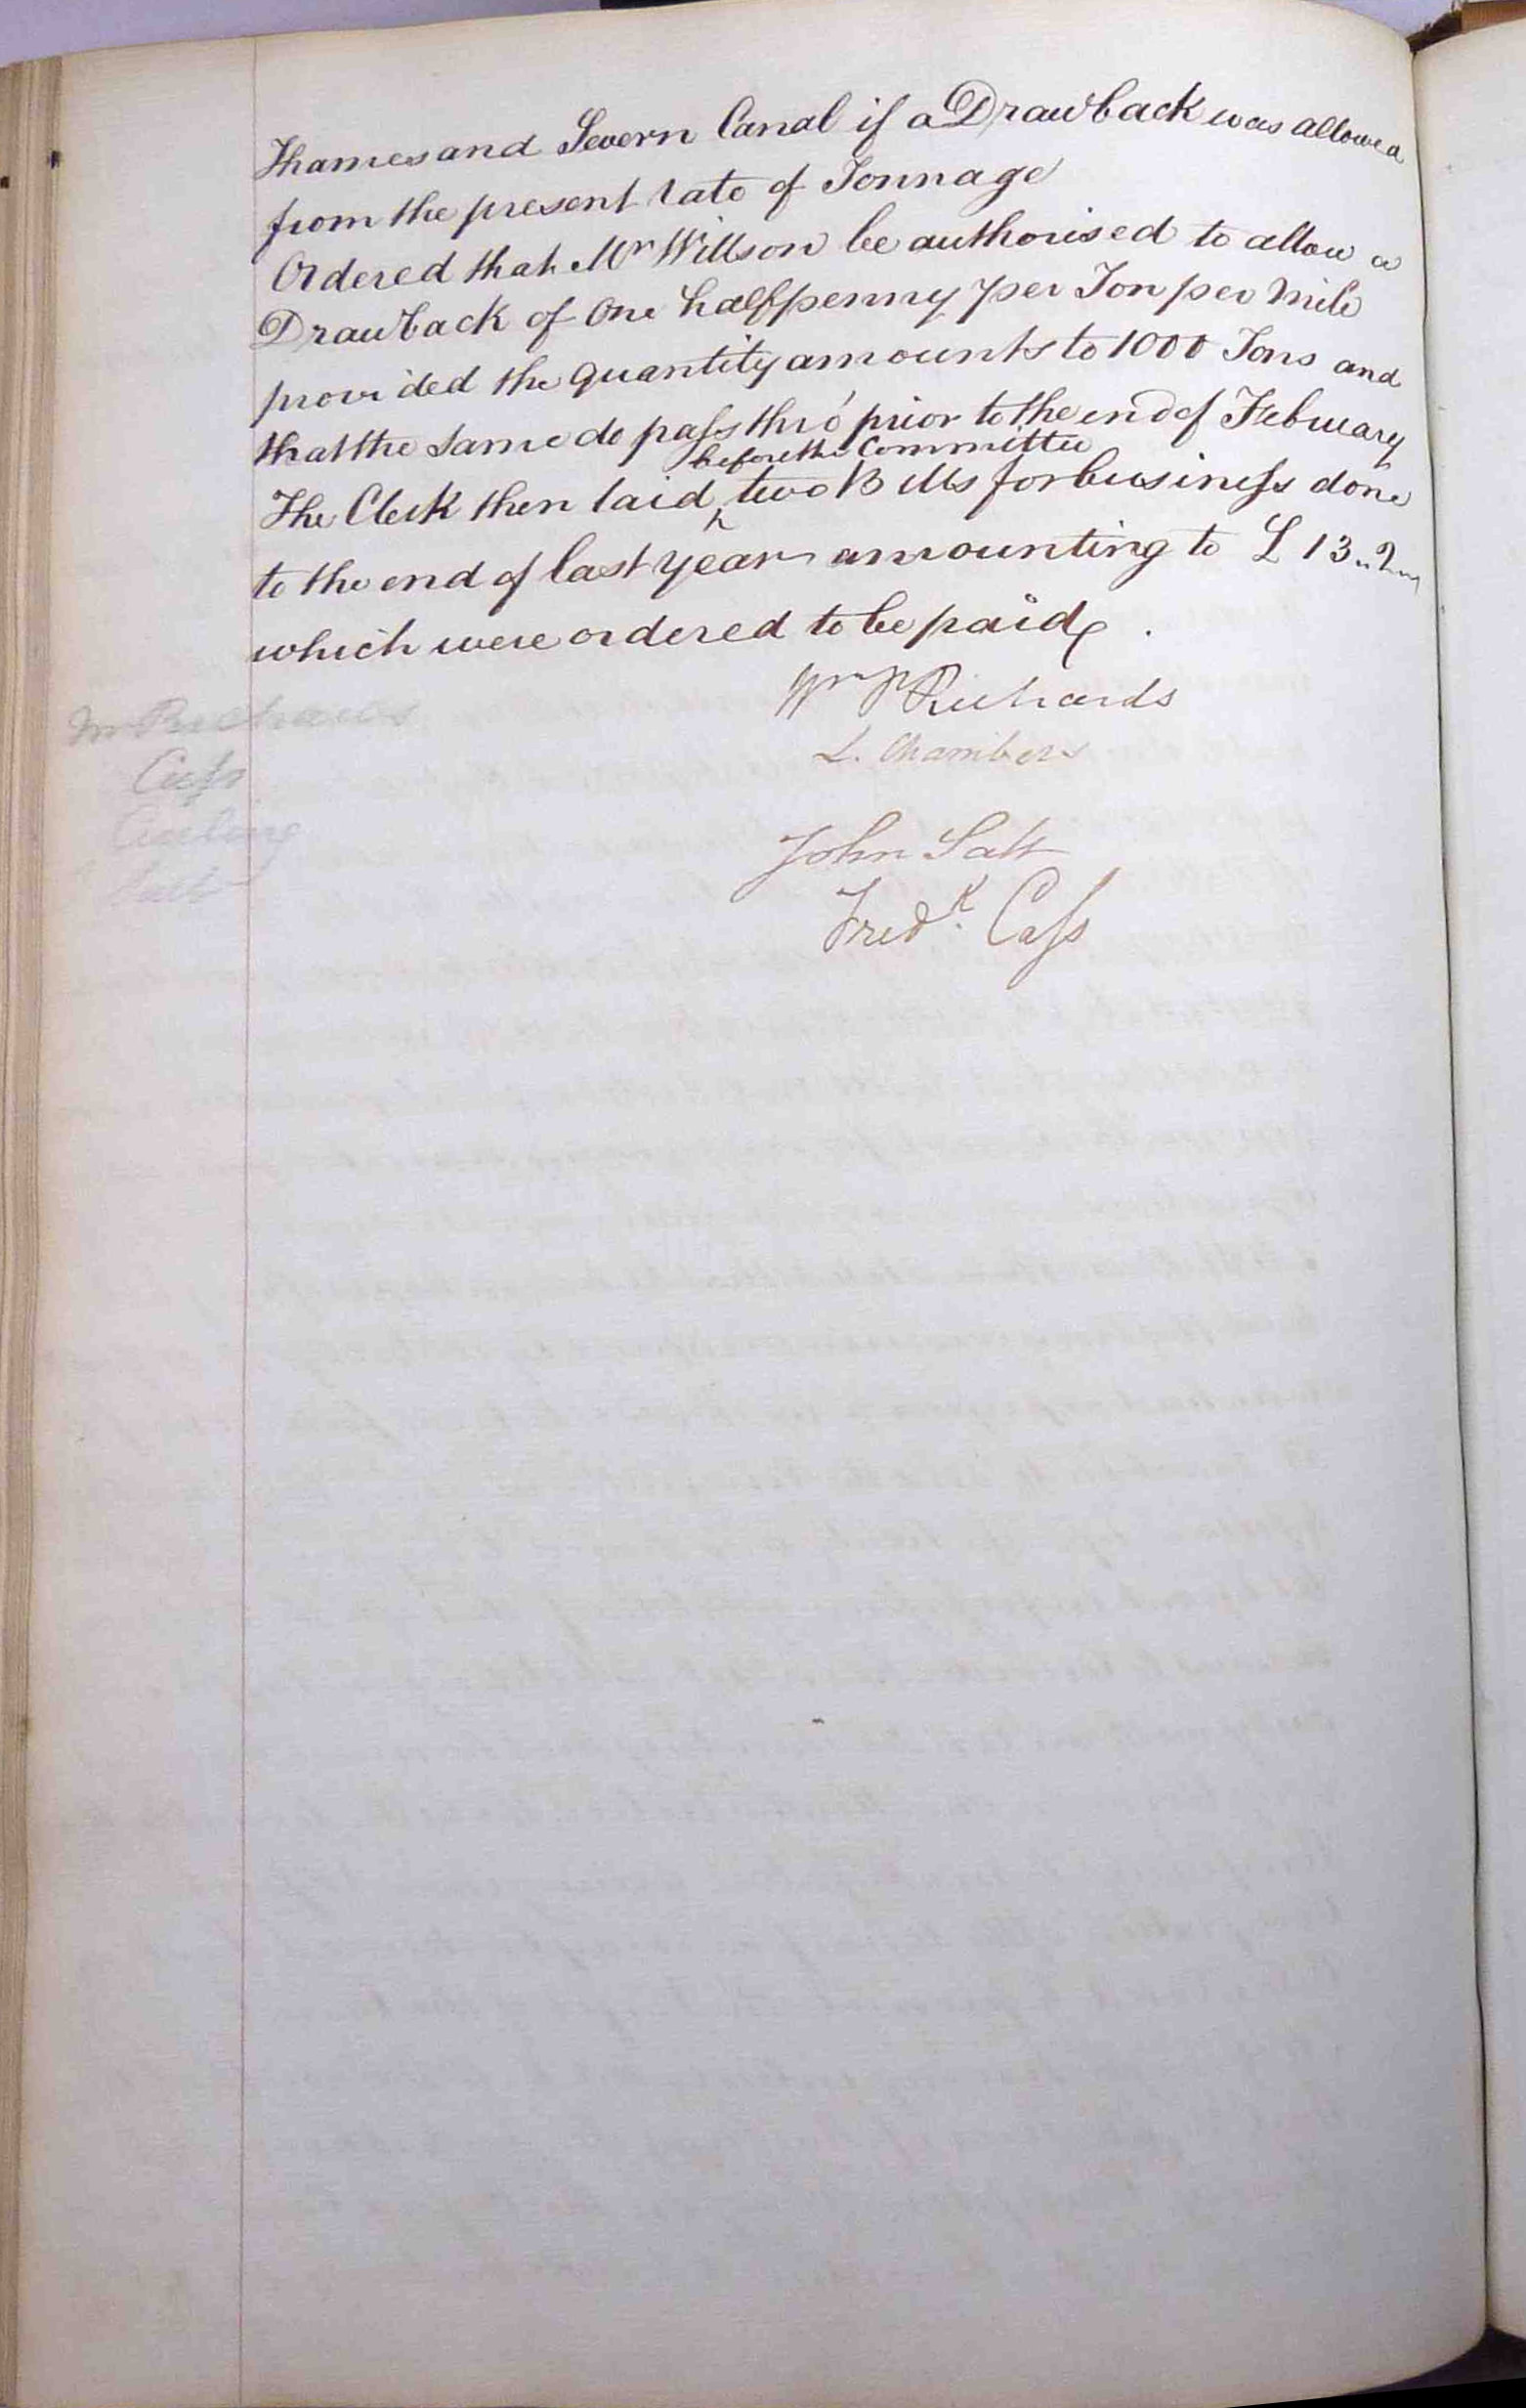 Thames and Severn Canal if a Drawback was allowed
from the present rate of Tonnage
Ordered that Mr Willson be authorised to allow a
Drawback of One halfpenny per Ton per Mile
provided the quantity amounts to 1000 Tons and
that the same do paſs thro' prior to the end of February
before the Committee
The Clerk then laid ‸ two Bills for busineſs done
to the end of last year amounting to £13..2..
which were ordered to be paid.
Wm P Richards
L. Chambers
John Salt
Fredk. Caſs
Mr Richards
Caſs
Salt